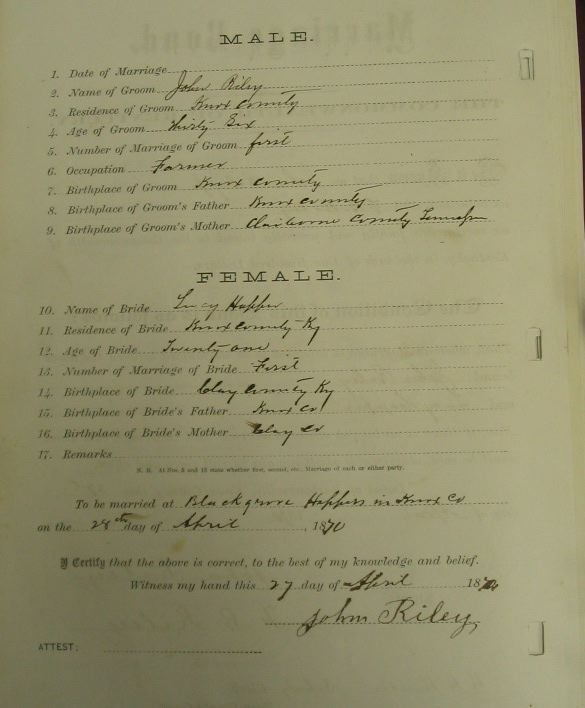 MALE.
1. Date of Marriage
2. Name of Groom John Riley
3. Residence of Groom Knox County
4. Age of Groom thirty Six
5. Number of Marriage of Groom first
6. Occupation Farmer
7. Birthplace of Groom Knox County
8. Birthplace of Groom's Father Knox County
9. Birthplace of Groom's Mother Claiborne County
FEMALE.
10. Name of Bride Lucy Hopper
11. Residence of Bride Knox County Ky
12. Age of Bride Twenty one
13. Number of Marriage of Bride First
14. Birthplace of Bride Clay County Ky
15. Birthplace of Bride's Father Knox Co
16. Birthplace of Bride's Mother Clay Co
17. Remarks
N. B. At Nos. 5 and 13 state whether first, second, etc., Marriage of each or either party.
To be married at Blackgrove Hoppers in Knox Co
on the 28th day of April, 1870
I Certify that the above is correct, to the best of my knowledge and belief.
Witness my hand this 27 day of April 18
John Riley
ATTEST: